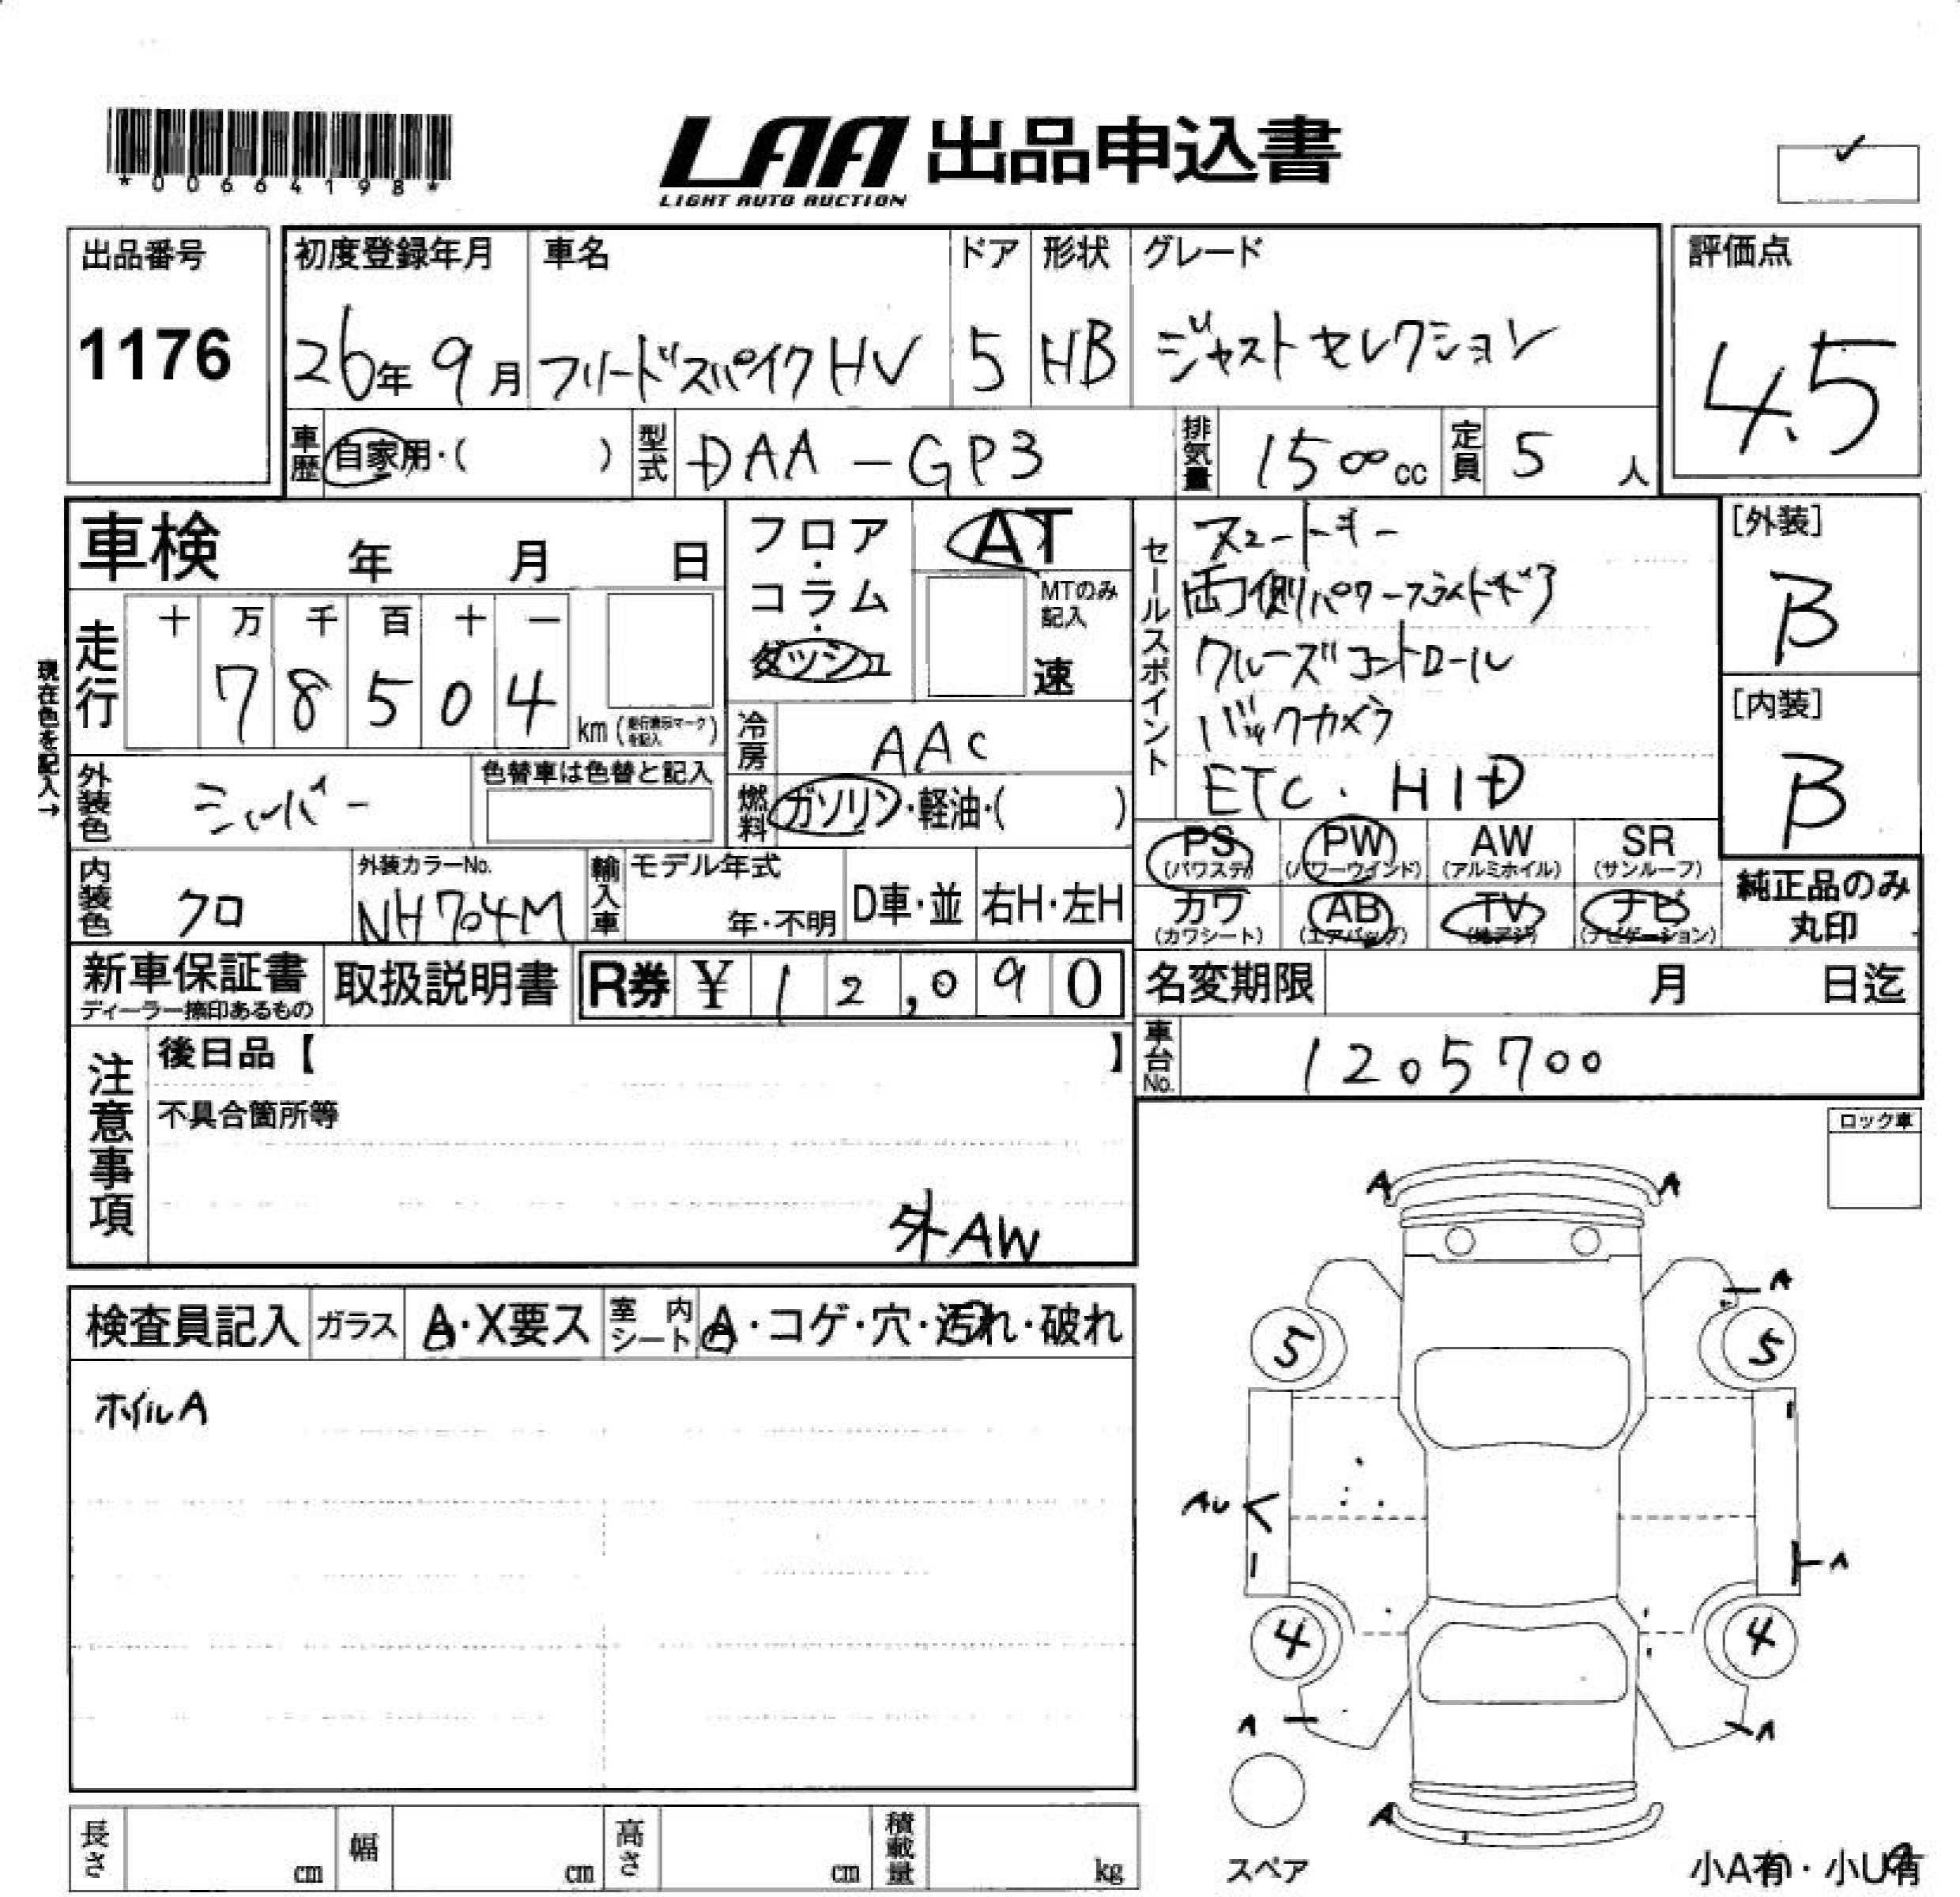 *00664198*
LAA 出品申込書
LIGHT AUTO AUCTION
出品番号
1176
初度登録年月
26年 9月
車名
フリードスパイクHV
ドア
5
形状
HB
グレード
ジャストセレクション
評価点
4.5
車歴
自家用・( )
型式
DAA-GP3
排気量
1500cc
定員
5 人
車検 年 月 日
フロア・コラム・ダッシュ
AT
MTのみ記入
速
セールスポイント
スマートキー
両側パワースライドドア
クルーズコントロール
バックカメラ
ETC. HID
[外装]
B
[内装]
B
現在色を記入→
走行
十 万 千 百 十 一
7 8 5 0 4
km(走行表示マークを記入)
冷房
AAC
外装色
シルバー
色替車は色替と記入
燃料
ガソリン・軽油・( )
PS (パワステ)
PW (パワーウインド)
AW (アルミホイル)
SR (サンルーフ)
カワ (カワシート)
AB (エアバッグ)
TV (地デジ)
ナビ (ナビゲーション)
純正品のみ丸印
内装色
クロ
外装カラーNo.
NH704M
輸入車
モデル年式
年・不明
D車・並
右H・左H
新車保証書
ディーラー捺印あるもの
取扱説明書
R券 ¥ 12,090
名変期限 月 日迄
注意事項
後日品【 】
不具合箇所等
外AW
車台No.
1205700
ロック車
検査員記入
ガラス
A・X要ス
室内シート
A・コゲ・穴・汚れ・破れ
ホイルA
A A
A
5 5
AU
A
4 4
A A
A
スペア
小A有・小U有
長さ cm
幅 cm
高さ cm
積載量 kg